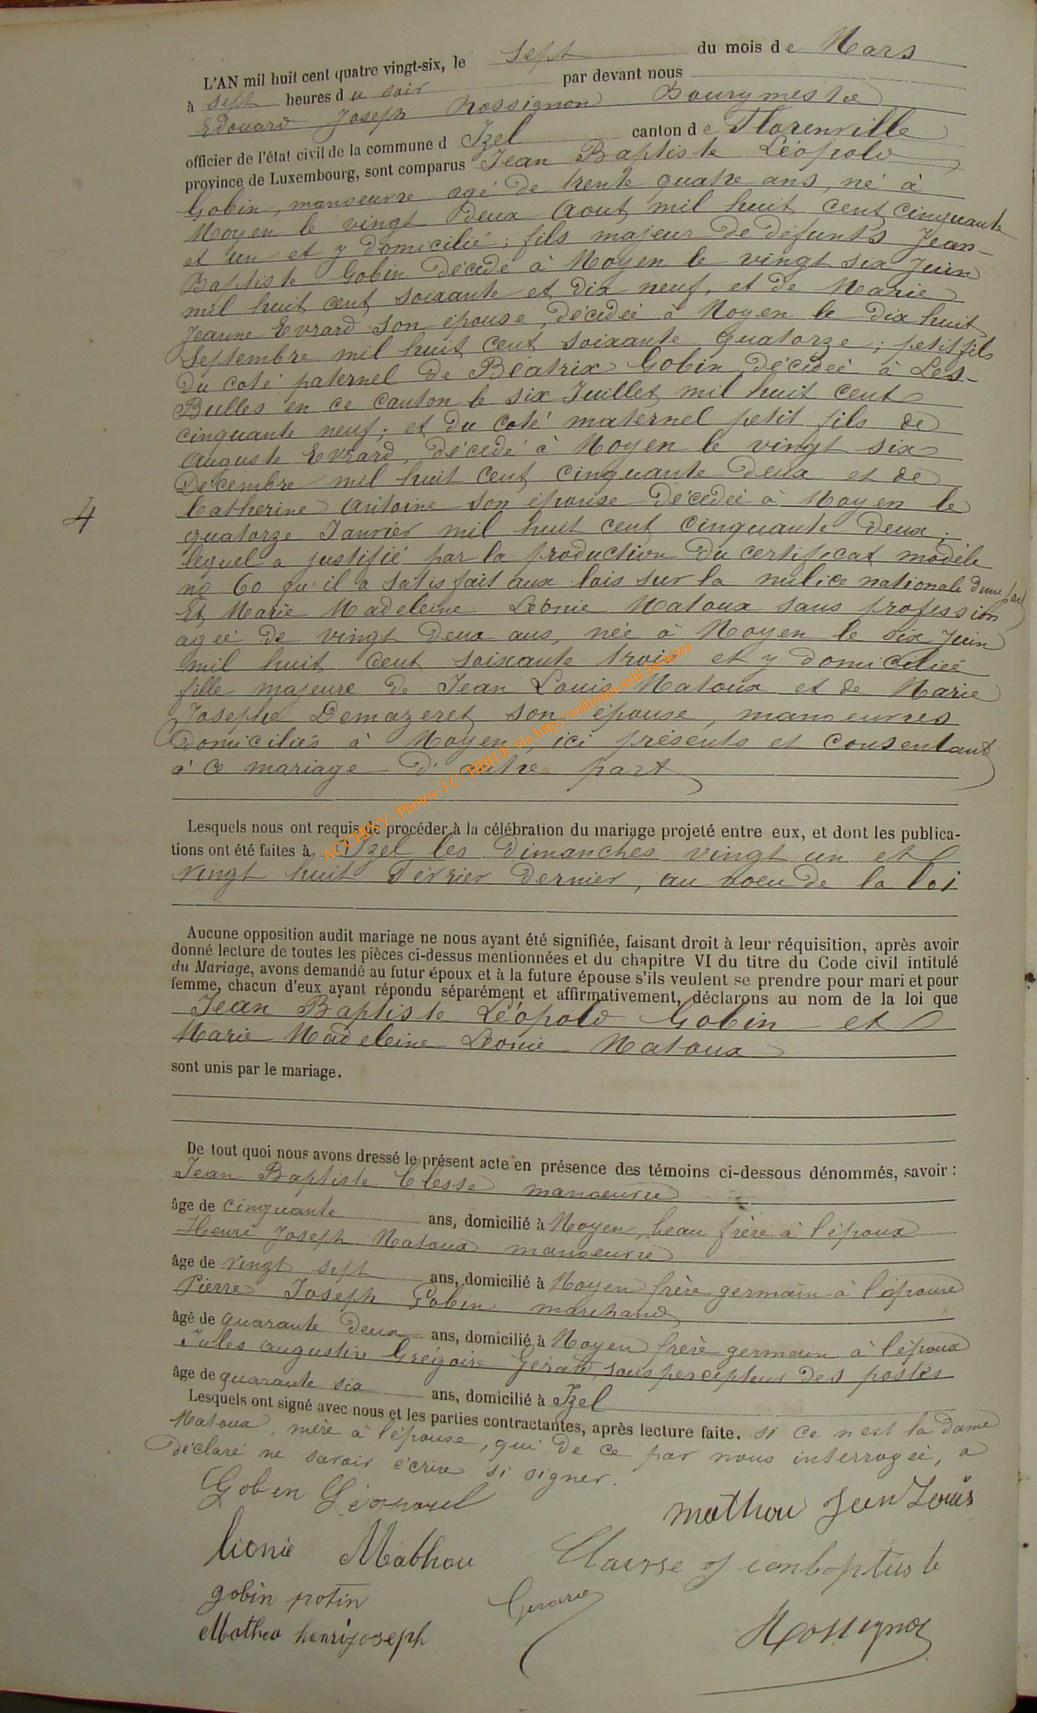 L'AN mil huit cent quatre vingt-six, le sept du mois de Mars
à sept heures du soir par devant nous
Edouard Joseph Rossignon Bourgmestre
officier de l'état civil de la commune d Izel canton de Florenville
province de Luxembourg, sont comparus Jean Baptiste Léopold
Gobin, manoeuvre agé de trente quatre ans, né à
Moyen le vingt deux Aout mil huit cent cinquante
et un et y domicilié; fils majeur de défunts Jean-
Baptiste Gobin décédé à Moyen le vingt six Juin
mil huit cent soixante et dix neuf, et de Marie
Jeanne Evrard son épouse, décédée à Moyen le dix huit
Septembre mil huit cent soixante quatorze; petit fils
du coté paternel de Béatrix Gobin décédée à Les-
Bulles en ce canton le six Juillet mil huit cent
cinquante neuf; et du coté maternel petit fils de
Auguste Evrard, décédé à Moyen le vingt six
Décembre mil huit cent cinquante deux et de
Catherine Antoine son épouse décédée à Moyen le
4
quatorze Janvier mil huit cent cinquante deux;
lequel a justifié par la production du certificat modèle
no 60 qu'il a satisfait aux lois sur la milice nationale d'une part
Et Marie Madeleine Léonie Matoux sans profession
agée de vingt deux ans, née à Moyen le six Juin
mil huit cent soixante trois et y domiciliée
fille majeure de Jean Louis Matoux et de Marie
Josephe Demazeret son épouse, manoeuvres
domiciliés à Moyen, ici présents et consentant
à ce mariage d'autre part
Lesquels nous ont requis de procéder à la célébration du mariage projeté entre eux, et dont les publica-
tions ont été faites à Izel les dimanches vingt un et
vingt huit Février dernier, au voeu de la loi
Aucune opposition audit mariage ne nous ayant été signifiée, faisant droit à leur réquisition, après avoir
donné lecture de toutes les pièces ci-dessus mentionnées et du chapitre VI du titre du Code civil intitulé
du Mariage, avons demandé au futur époux et à la future épouse s'ils veulent se prendre pour mari et pour
femme, chacun d'eux ayant répondu séparément et affirmativement, déclarons au nom de la loi que
Jean Baptiste Léopold Gobin et
Marie Madeleine Léonie Matoux
sont unis par le mariage.
De tout quoi nous avons dressé le présent acte en présence des témoins ci-dessous dénommés, savoir :
Jean Baptiste Clesse manoeuvre
âge de cinquante ans, domicilié à Moyen, beau frère à l'époux
Henri Joseph Matoux manoeuvre
âge de vingt sept ans, domicilié à Moyen frère germain à l'épouse
Pierre Joseph Gobin marchand
âgé de quarante deux ans, domicilié à Moyen frère germain à l'époux
Jules Augustin Grégoire Gérard, sous percepteur des postes
âge de quarante six ans, domicilié à Izel
Lesquels ont signé avec nous et les parties contractantes, après lecture faite. si ce n'est la dame
Matoux, mère à l'épouse, qui de ce par nous interrogée, a
déclaré ne savoir écrire ni signer.
Gobin Léopold
mathou Jean Louis
Léonie Mathou
gobin
Mathou henrijoseph
Rossignon